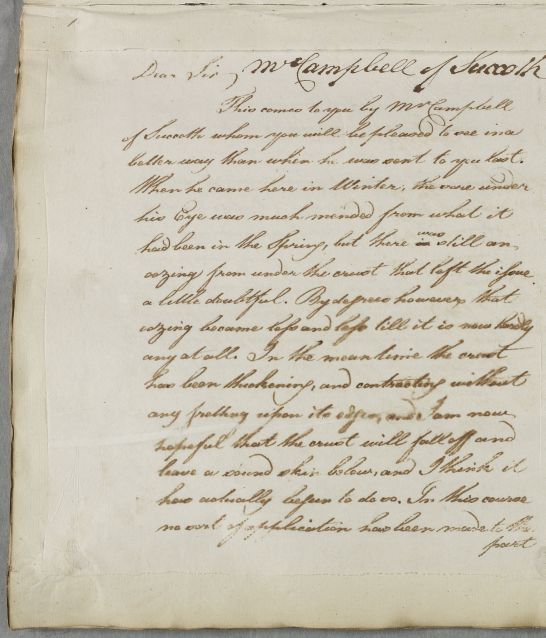 1
Dear Sir, Mr Campbell of Succoth
This comes to you by Mr Campbell
of Succoth whom you will be pleased to see in a
better way than when he was sent to you last.
When he came here in Winter, the sore under
his Eye was much mended from what it
had been in the Spring, but there was still an
oozing from under the crust that left the issue
a little doubtful. By degrees however, that
oozing became less and less till it is now hardly
any at all. In the mean time the crust
has been thickening, and contracting without
any fretting upon its edges, and I am now
hopeful that the crust will fall off and
leave a sound skin below, and I think it
has actually begun to do so. In this course
no sort of application has been made to the
part